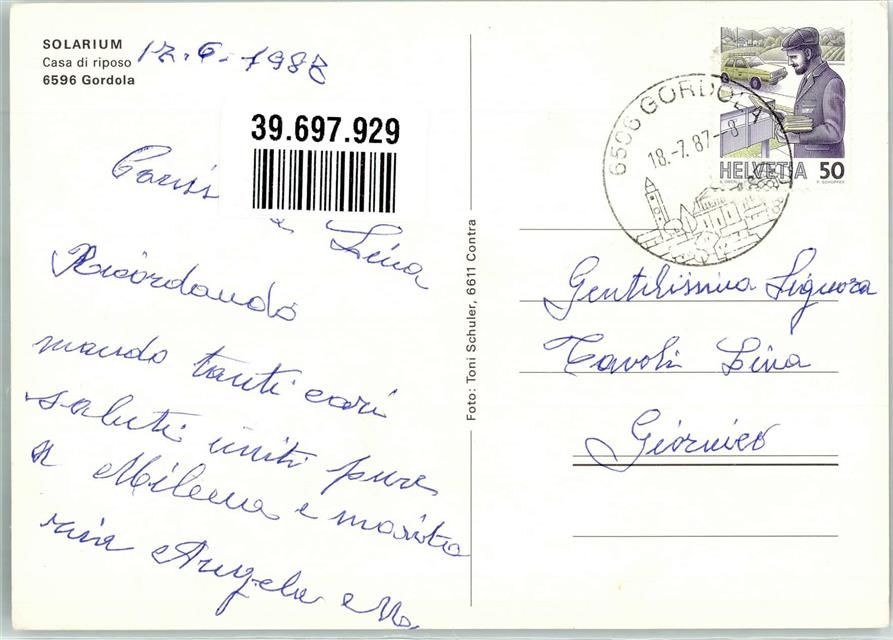 SOLARIUM
Casa di riposo
6596 Gordola
17.6.1987
39.697.929
Lina
Ricordando
mando tanti cari
saluti uniti pure
a Milena e
Angela e
Foto: Toni Schuler, 6611 Contra
6596 GORDOLA
18.-7.87-8
HELVETIA 50
Gentilissima Signora
Tavoli Lina
Giornico